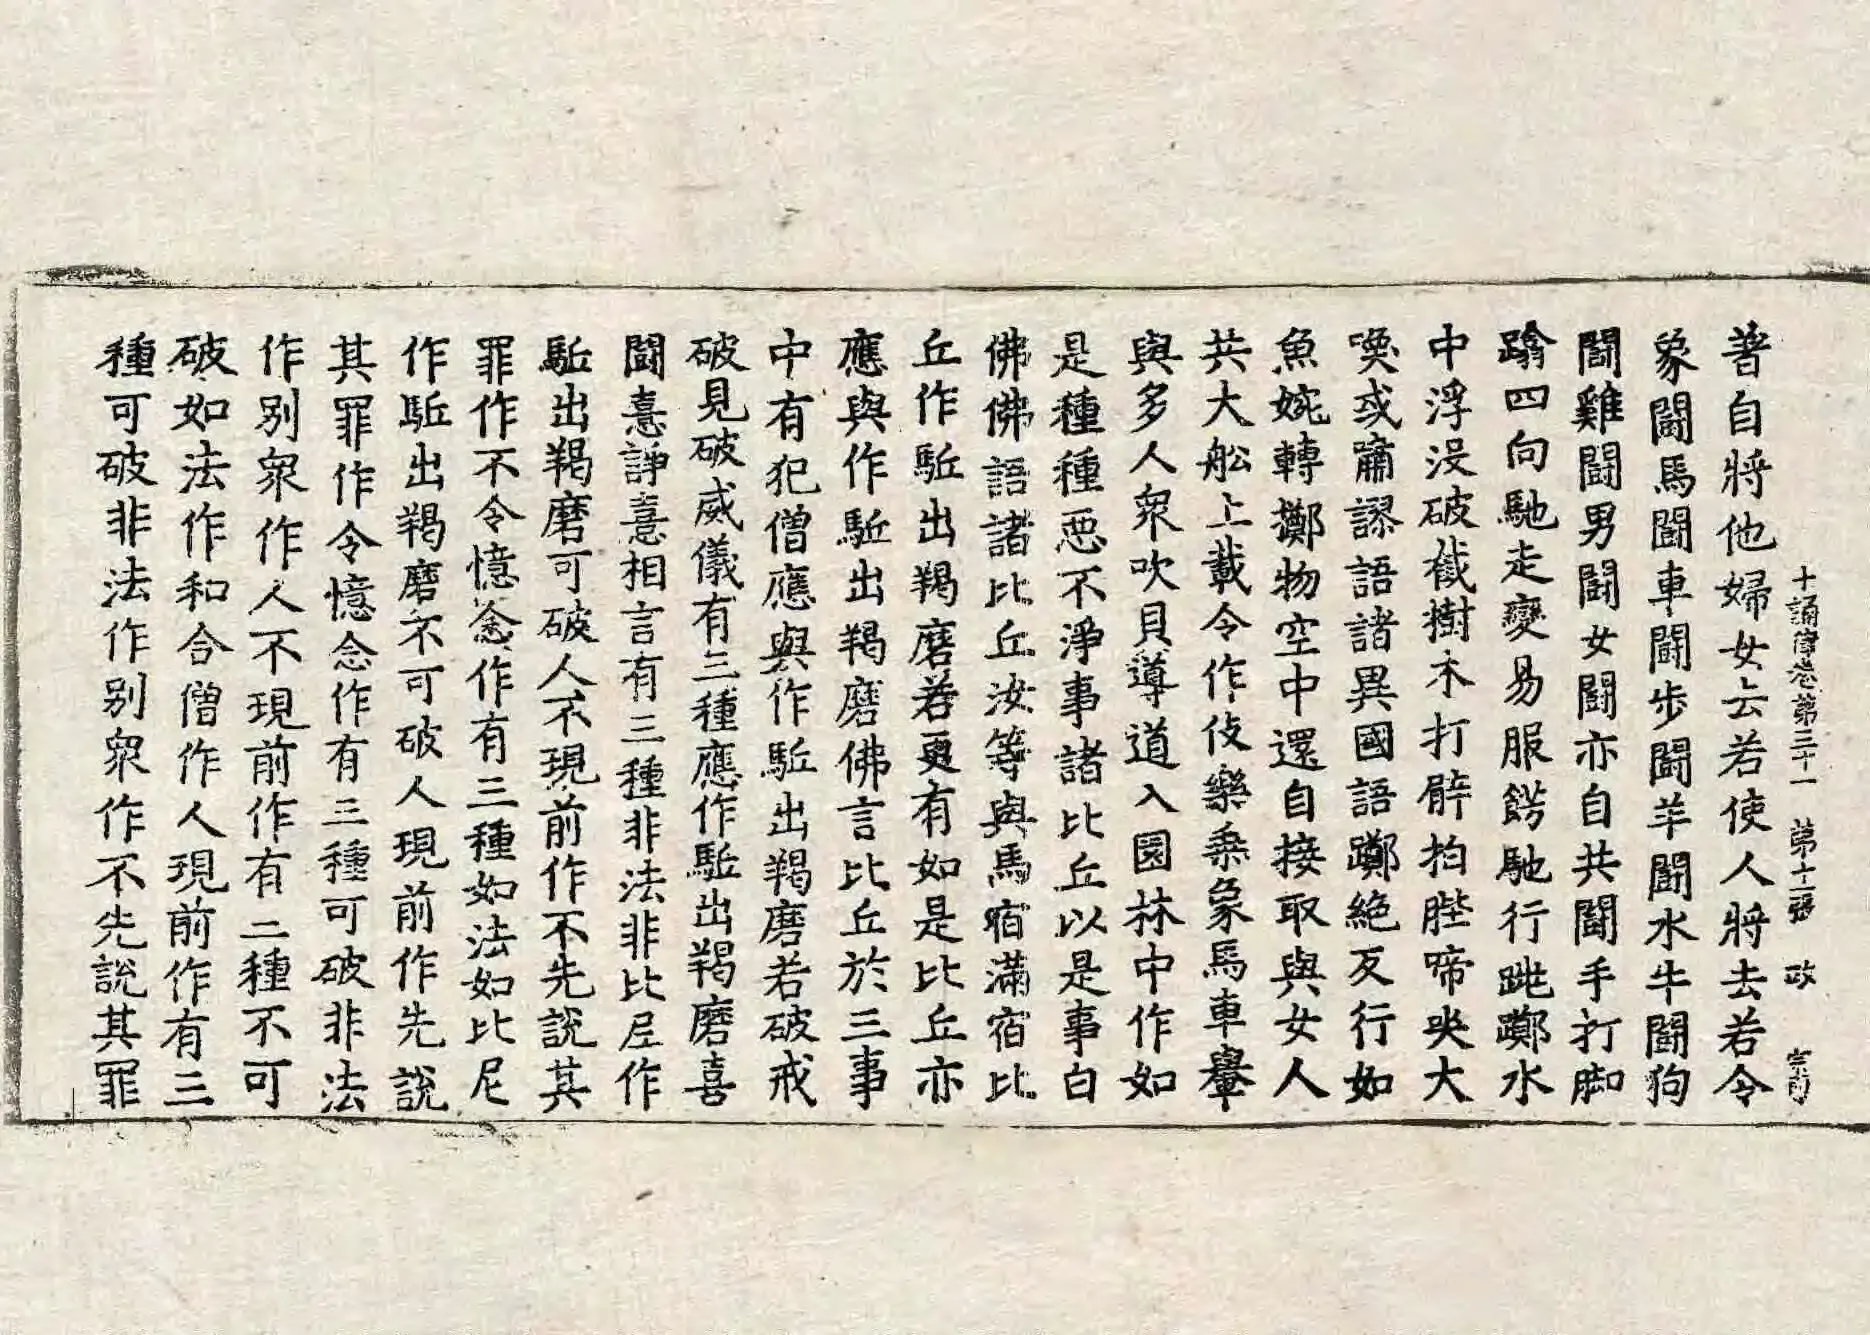 十誦律卷第三十一　第十二張　政　宗門
著自將他婦女去若使人將去若令
象鬪馬鬪車鬪步鬪羊鬪水牛鬪狗
鬪雞鬪男鬪女鬪亦自共鬪手打脚
蹹四向馳走變易服餝馳行跳躑水
中浮没破截樹木打臂拍髀啼哭大
喚或嘯謬語諸異國語躑絕反行如
魚婉轉擲物空中還自接取與女人
共大舩上載令作伎樂乘象馬車轝
與多人衆吹貝導道入園林中作如
是種種惡不淨事諸比丘以是事白
佛佛語諸比丘汝等與馬宿滿宿比
丘作駈出羯磨若更有如是比丘亦
應與作駈出羯磨佛言比丘於三事
中有犯僧應與作駈出羯磨若破戒
破見破威儀有三種應作駈出羯磨喜
鬪憙諍憙相言有三種非法非比尼作
駈出羯磨可破人不現前作不先說其
罪作不令憶念作有三種如法如比尼
作駈出羯磨不可破人現前作先說
其罪作令憶念作有三種可破非法
作別衆作人不現前作有二種不可
破如法作和合僧作人現前作有三
種可破非法作別衆作不先說其罪